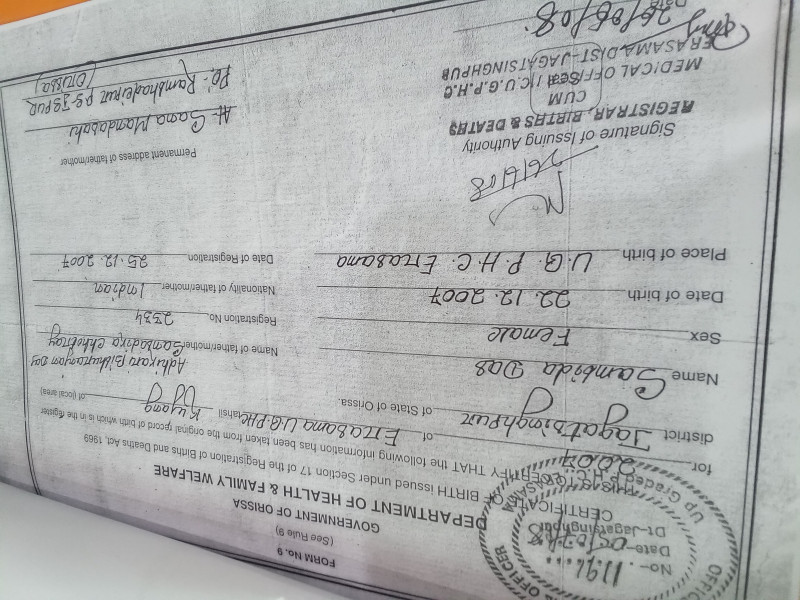 FORM No. 9
(See Rule 9)
GOVERNMENT OF ORISSA
DEPARTMENT OF HEALTH & FAMILY WELFARE
CERTIFICATE OF BIRTH issued under Section 17 of the Registration of Births and Deaths Act, 1969
THIS IS TO CERTIFY THAT the following information has been taken from the original record of birth which is in the register
for 2007 of Errasama U.G.P.H.C Tahsil Kujang of (local area)
district Jagatsinghpur of State of Orissa.
Name Sambida Das
Name of father/mother Adhikari Bibhutaranjan Das
Sex Female
Registration No. 2334
Date of birth 22.12.2007
Nationality of father/mother Indian
Place of birth U.G.P.H.C. Errasama
Date of Registration 25.12.2007
Permanent address of father/mother
At
PO:- PS-JSPUR
(ORISSA)
Signature of Issuing Authority
REGISTRAR, BIRTHS & DEATHS
CUM
MEDICAL OFFICER I/C U.G.P.H.C
ERASAMA, DIST-JAGATSINGHPUR
Seal
Date 26/06/08
No- 1191
Date-
Dt-Jagatsinghpur
OFFICER
Up Graded P.H.C.